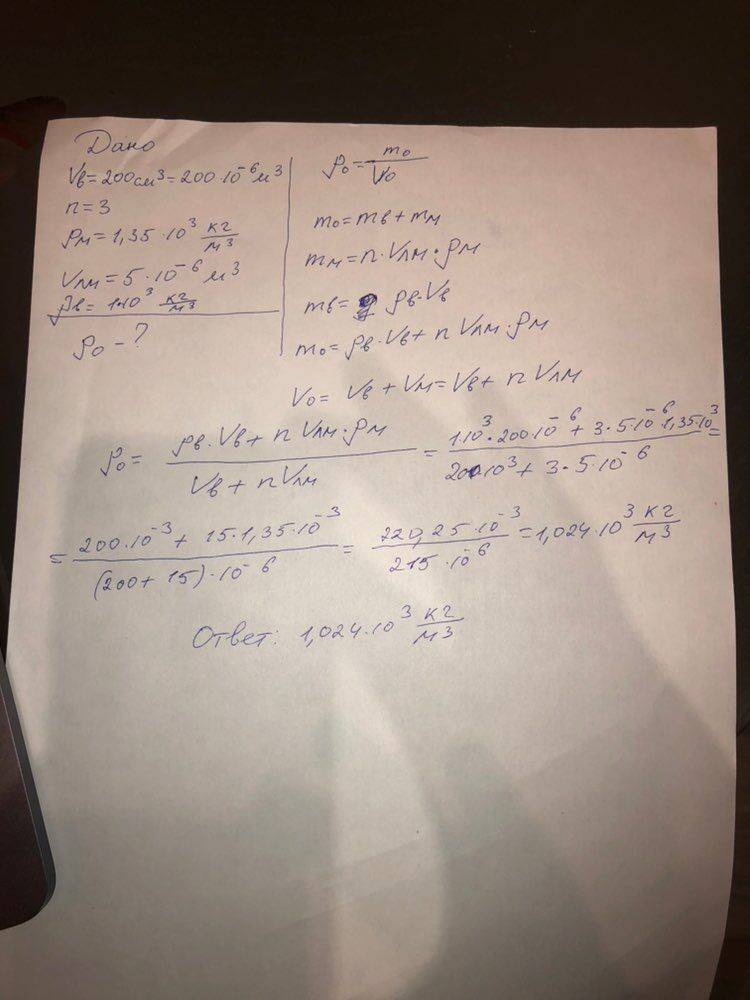 Дано
Vв=200см³=200·10⁻⁶м³
n=3
ρм=1,35·10³ кг/м³
Vлм=5·10⁻⁶м³
ρв=1·10³ кг/м³
ρ₀-?
ρ₀=m₀/V₀
m₀=mв+mм
mм=n·Vлм·ρм
mв= ρв·Vв
m₀=ρв·Vв+nVлм·ρм
V₀=Vв+Vм=Vв+nVлм
ρ₀=(ρв·Vв+nVлм·ρм)/(Vв+nVлм)=(1·10³·200·10⁻⁶+3·5·10⁻⁶·1,35·10³)/(200·10³+3·5·10⁻⁶)=
=(200·10⁻³+15·1,35·10⁻³)/((200+15)·10⁻⁶)=(220,25·10⁻³)/(215·10⁻⁶)=1,024·10³ кг/м³
Ответ: 1,024·10³ кг/м³